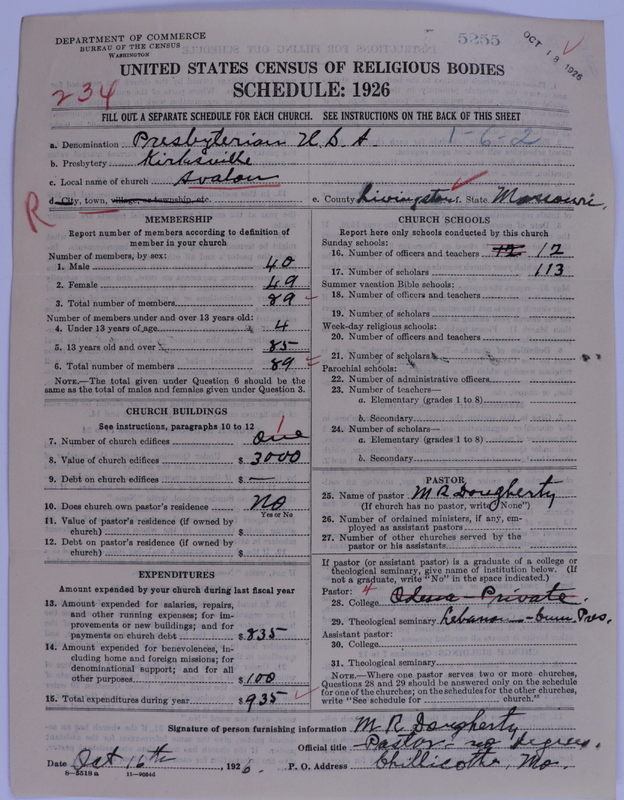 DEPARTMENT OF COMMERCE
BUREAU OF THE CENSUS
WASHINGTON
5255
OCT 18 1926
UNITED STATES CENSUS OF RELIGIOUS BODIES
SCHEDULE: 1926
234
FILL OUT A SEPARATE SCHEDULE FOR EACH CHURCH. SEE INSTRUCTIONS ON THE BACK OF THIS SHEET
a. Denomination Presbyterian U.S.A. 1-6-2
b. Presbytery Kirksville
c. Local name of church Avalon
d. City, town, village, or township, etc. e. County Livingston f. State Missouri
R
MEMBERSHIP
Report number of members according to definition of
member in your church
Number of members, by sex:
1. Male 40
2. Female 49
3. Total number of members 89
Number of members under and over 13 years old:
4. Under 13 years of age 4
5. 13 years old and over 85
6. Total number of members 89
NOTE.—The total given under Question 6 should be the
same as the total of males and females given under Question 3.
CHURCH BUILDINGS
See instructions, paragraphs 10 to 12
7. Number of church edifices one 1
8. Value of church edifices $ 3000
9. Debt on church edifices $ —
10. Does church own pastor's residence No
Yes or No
11. Value of pastor's residence (if owned by
church) $
12. Debt on pastor's residence (if owned by
church) $
EXPENDITURES
Amount expended by your church during last fiscal year
13. Amount expended for salaries, repairs,
and other running expenses; for im-
provements or new buildings; and for
payments on church debt $ 835
14. Amount expended for benevolences, in-
cluding home and foreign missions; for
denominational support; and for all
other purposes $ 100
15. Total expenditures during year $ 935
CHURCH SCHOOLS
Report here only schools conducted by this church
Sunday schools:
16. Number of officers and teachers 12 12
17. Number of scholars 113
Summer vacation Bible schools:
18. Number of officers and teachers
19. Number of scholars
Week-day religious schools:
20. Number of officers and teachers
21. Number of scholars
Parochial schools:
22. Number of administrative officers
23. Number of teachers—
a. Elementary (grades 1 to 8)
b. Secondary
24. Number of scholars—
a. Elementary (grades 1 to 8)
b. Secondary
PASTOR
25. Name of pastor M R Dougherty
(If church has no pastor, write "None")
26. Number of ordained ministers, if any, em-
ployed as assistant pastors
27. Number of other churches served by the
pastor or his assistants
If pastor (or assistant pastor) is a graduate of a college or
theological seminary, give name of institution below. (If
not a graduate, write "No" in the space indicated.)
Pastor: 4
28. College Odessa - Private
29. Theological seminary Lebanon - Cum. Pres.
Assistant pastor:
30. College
31. Theological seminary
NOTE.—Where one pastor serves two or more churches,
Questions 28 and 29 should be answered only on the schedule
for one of the churches; on the schedules for the other churches,
write "See schedule for church."
Signature of person furnishing information M R Dougherty
Official title Pastor - no degrees.
Date Oct 16th, 1926. P. O. Address Chillicothe, Mo.
8—5518 a 11—9084d